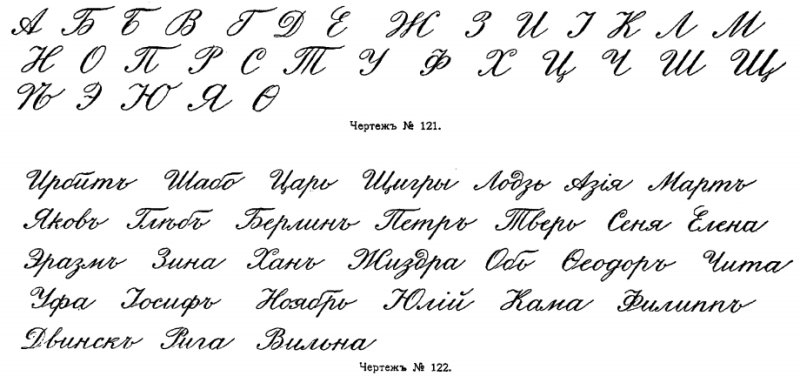 А Б Б В Г Д Е Ж З И І К Л М
Н О П Р С Т У Ф Х Ц Ч Ш Щ
Ѣ Э Ю Я Ѳ
Чертежъ № 121.
Ирбитъ Шабо Царь Щигры Лодзь Азія Мартъ
Яковъ Глѣбъ Берлинъ Петръ Тверь Сеня Елена
Эразмъ Зина Ханъ Жиздра Объ Ѳеодоръ Чита
Уфа Іосифъ Ноябрь Юлій Кама Филиппъ
Двинскъ Рига Вильна
Чертежъ № 122.